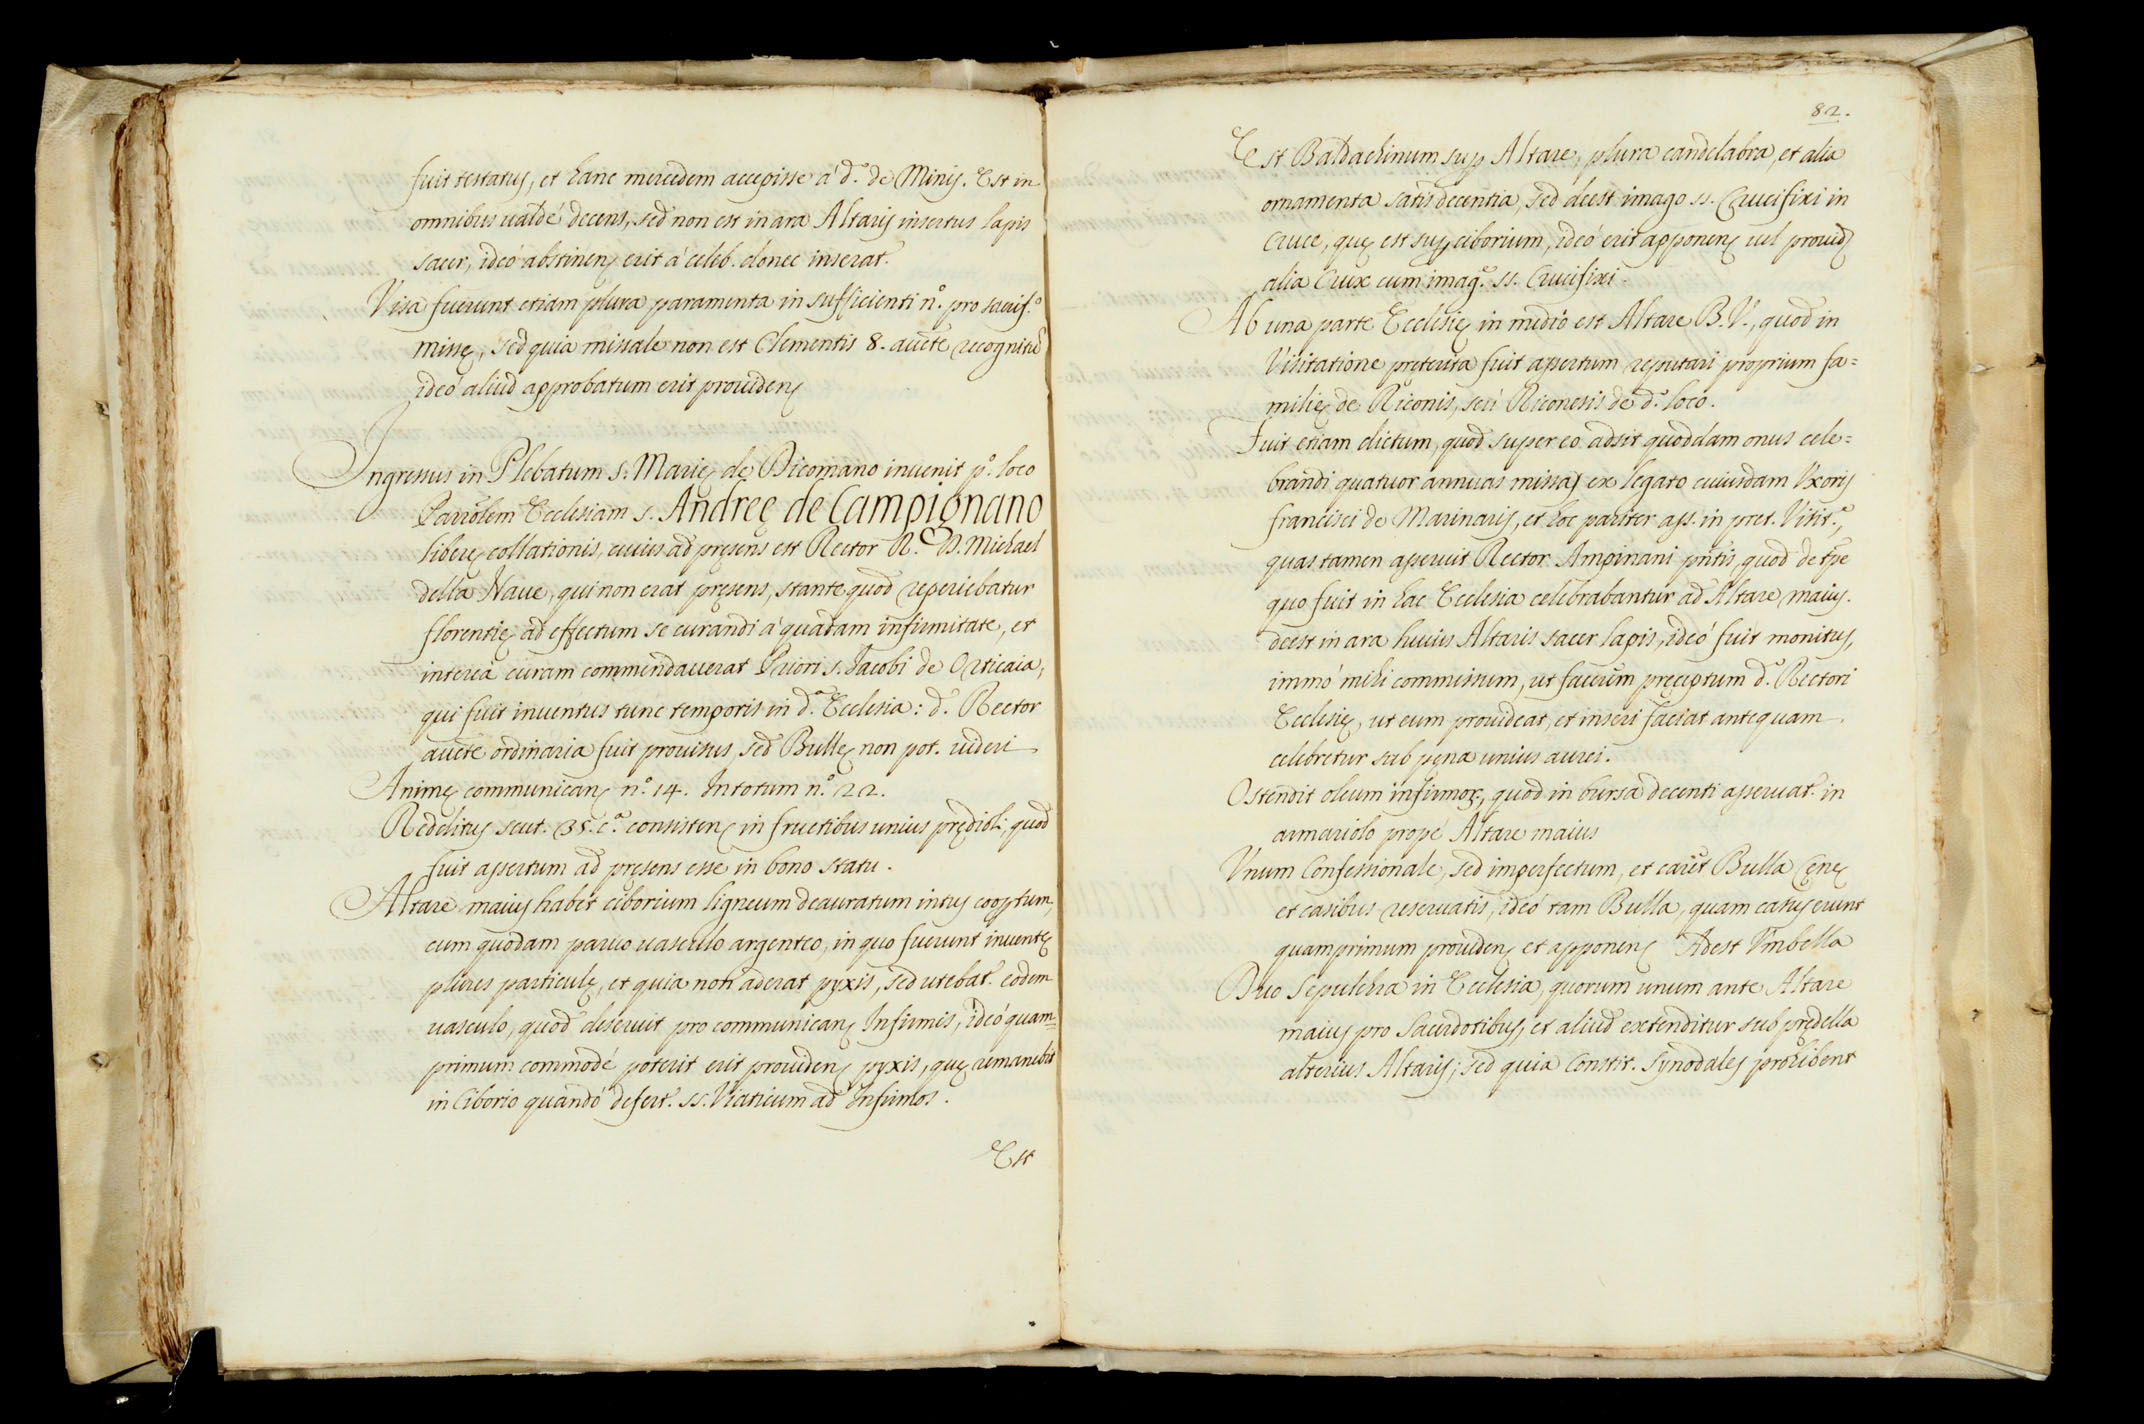 fuit testatus, et hanc mercedem accepisse à d.º de Minis. Est in
omnibus ualdè decens, sed non est in ara Altaris insertus lapis
sacer, ideò abstinen̄ erit à celeb. donec inserat.
Visa fuerunt etiam plura paramenta in sufficienti n.º pro sacrif.º
missę, sed quia missale non est Clementis 8. aucte recognitū
ideò aliud approbatum erit prouiden̄
Ingressus in Plebatum s. Marię de Dicomano inuenit p.º loco
Parrōlem Ecclesiam s. Andreę de Campignano
liberę collationis, cuius ad pręsens est Rector R. D. Michael
della Naue, qui non erat pręsens, stante quod reperiebatur
florentię ad effectum se curandi à quadam infirmitate, et
intereà curam commendauerat Priori s. Jacobi de Orticaia,
qui fuit inuentus tunc temporis in d.ª Ecclesia: d.º Rector
aucte ordinaria fuit prouisus sed Bullę non pot. uideri
Animę communican̄ n.º 14. In totum n.º 22.
Redditus scut. 35. c.ª consisten̄ in fructibus unius prędioli, quod
fuit assertum ad pręsens esse in bono statu.
Altare maius habet ciborium ligneum deauratum intus cooptum,
cum quodam paruo uasculo argenteo, in quo fuerunt inuentę
plures particulę, et quia non aderat pyxis, sed utebat. eodem
uasculo, quod deseruit pro communican̄ Infirmis, ideò quam=
primum commodè poterit erit prouiden̄ pyxis, quę remanebit
in Ciborio quandò defert. ss. Viaticum ad Infirmos.
Est
82.
Est Baldachinum sup Altare, plura candelabra, et alia
ornamenta satis decentia, sed deest imago ss. Crucifixi in
cruce, quę est sup ciborium, ideò erit apponen̄ uel prouid̄
alia Crux cum imag.e ss. Crucifixi.
Ab una parte Ecclesię in medio est Altare B. V., quod in
Visitatione pręterita fuit assertum reputari proprium fa=
milię de Riconis, seù Riconesis de d.º loco.
Fuit etiam dictum, quod super eo adsit quoddam onus cele=
brandi quatuor annuas missas ex legato cuiusdam Vxoris
francisci de Marinaris, et hoc pariter ass. in pret. Visit.e,
quas tamen asseruit Rector Ampinani pn̄tis, quod de tpe
quo fuit in hac Ecclesia celebrabantur ad Altare maius.
deest in ara huius Altaris sacer lapis, ideò fuit monitus,
immò mihi commissum, ut facerem pręceptum d.º Rectori
Ecclesię, ut eum prouideat, et inseri faciat antequam
celebretur sub pęna unius aurei.
Ostendit oleum infirmoꝝ, quod in bursa decenti asseruat. in
armariolo propè Altare maius
Vnum Confessionale, sed imperfectum, et caret Bulla Cęnę
et casibus reseruatis, ideò tam Bulla, quam casus erunt
quamprimum prouiden̄ et apponen̄ Adest Vmbella
Duo Sepulchra in Ecclesia, quorum unum ante Altare
maius pro Sacerdotibus, et aliud extenditur sub prędella
alterius Altaris; sed quia Constit. Synodales prohibent